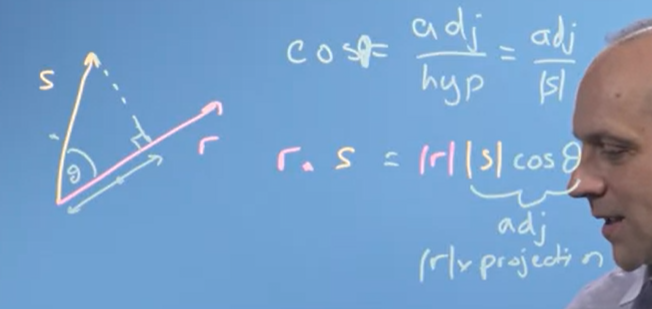 s
r
θ
cosθ = adj/hyp = adj/|s|
r. s = |r||s|cosθ
adj
|r| x projection